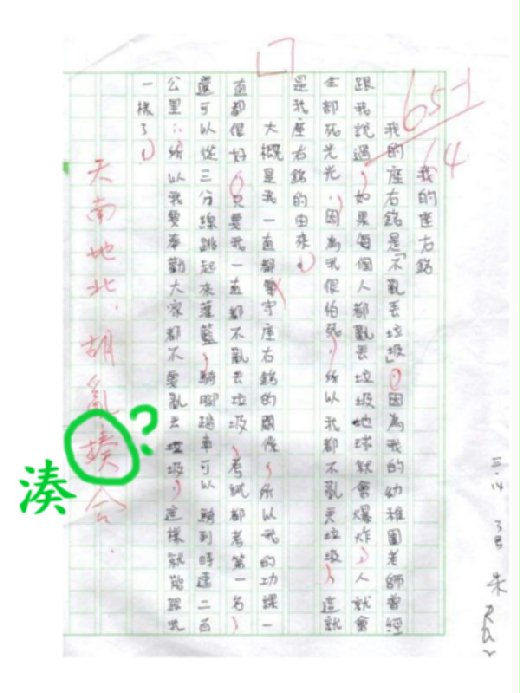 我的座右銘
我的座右銘是「不亂丟垃圾」,因為我的幼稚園老師曾經
跟我說過,如果每個人都亂丟垃圾地球就會爆炸,人就會
全都死光光,因為我很怕死,所以我都不亂丟垃圾,這就
是我座右銘的由來。
大概是我一直都 守座右銘的關係,所以我的功課一
直都很好,只要我一直都不亂丟垃圾,考試都考第一名,
還可以從三分線跳起來灌籃,騎腳踏車可以騎到時速二百
公里,所以我要奉勸大家都不要亂丟垃圾,這樣就能跟我
一樣了。
65-1
64
天南地北.胡亂揍合.
?
湊